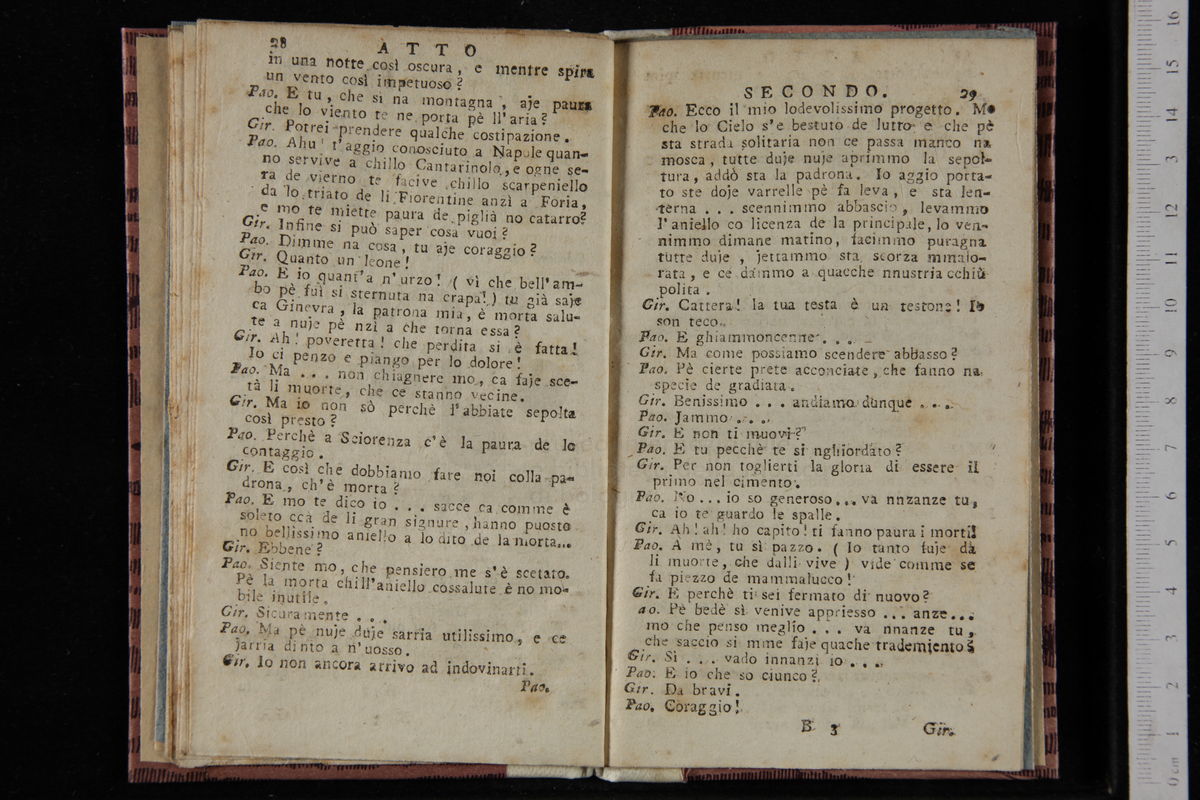 28
ATTO
in una notte così oscura, e mentre spira
un vento così impetuoso?
Pao. E tu, che si na montagna, aje paura
che lo viento te ne porta pè ll'aria?
Gir. Potrei prendere qualche costipazione.
Pao. Ahu! t'aggio conosciuto a Napole quan-
no servive a chillo Cantarinolo, e ogne se-
ra de vierno te facive chillo scarpeniello
da lo triato de li Fiorentine anzì a Foria,
e mo te miette paura de piglià no catarro?
Gir. Infine si può saper cosa vuoi?
Pao. Dimme na cosa, tu aje coraggio?
Gir. Quanto un leone!
Pao. E io quant'a n'urzo! (vì che bell'am-
bo pè fuì si sternuta na crapa!) tu già saje
ca Ginevra, la patrona mia, è morta salu-
te a nuje pè nzì a che torna essa?
Gir. Ah! poveretta! che perdita si è fatta!
Io ci penzo e piango per lo dolore!
Pao. Ma . . . non chiagnere mo, ca faje sce-
tà li muorte, che ce stanno vecine.
Gir. Ma io non sò perchè l'abbiate sepolta
così presto?
Pao. Perchè a Sciorenza c'è la paura de lo
contaggio.
Gir. E così che dobbiamo fare noi colla pa-
drona, ch'è morta?
Pao. E mo te dico io . . . sacce ca comme è
soleto ccà de li gran signure, hanno puosto
no bellissimo aniello a lo dito de la morta...
Gir. Ebbene?
Pao. Siente mo, che pensiero me s'è scetato.
Pè la morta chill'aniello cossalute è no mo-
bile inutile.
Gir. Sicuramente . . .
Pao. Ma pè nuje duje sarria utilissimo, e ce
jarria dinto a n'uosso.
Gir. Io non ancora arrivo ad indovinarti.
Pao.
SECONDO. 29
Pao. Ecco il mio lodevolissimo progetto. Mo
che lo Cielo s'e bestuto de lutto e che pè
sta strada solitaria non ce passa manco na
mosca, tutte duje nuje aprimmo la sepol-
tura, addò sta la padrona. Io aggio porta-
to ste doje varrelle pè fa leva, e sta len-
terna . . . scennimmo abbascio, levammo
l'aniello co licenza de la principale, lo ven-
nimmo dimane matino, facimmo puragna
tutte duje, jettammo sta scorza mmalo-
rata, e ce dammo a quacche nnustria cchiù
polita.
Gir. Cattera! la tua testa è un testone! Io
son teco.
Pao. E ghiammoncenne . . .
Gir. Ma come possiamo scendere abbasso?
Pao. Pè cierte prete acconciate, che fanno na
specie de gradiata.
Gir. Benissimo . . . andiamo dunque . . .
Pao. Jammo . . .
Gir. E non ti muovi?
Pao. E tu pecchè te si nghiordato?
Gir. Per non toglierti la gloria di essere il
primo nel cimento.
Pao. No ... io so generoso... va nnzanze tu,
ca io te guardo le spalle.
Gir. Ah! ah! ho capito! ti fanno paura i morti!
Pao. A mè, tu sì pazzo. (Io tanto fuje da
li muorte, che dalli vive) vide comme se
fa piezzo de mammalucco!
Gir. E perchè ti sei fermato di nuovo?
ao. Pè bedè sì venive appriesso ... anze...
mo che penso meglio . . . va nnanze tu,
che saccio si mme faje quache trademiento?
Gir. Sì . . . vado innanzi io . . .
Pao. E io che so ciunco?
Gir. Da bravi.
Pao. Coraggio!
B 3
Gir.